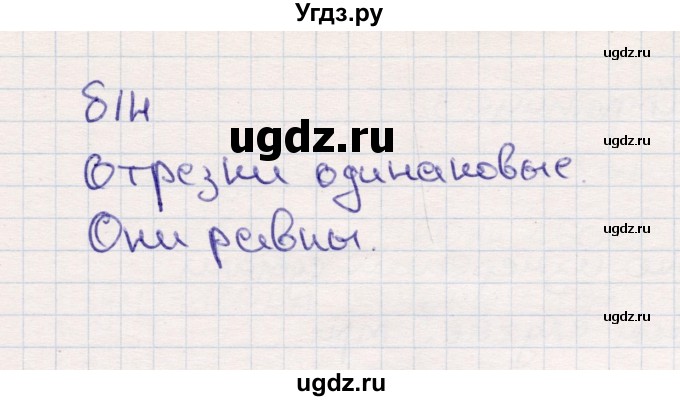 Угдз.ру
ugdz.ru
814
ugdz.ru
Отрезки одинаковые.
ugdz.ru
Они равны.
ugdz.ru
ugdz.ru
ugdz.ru